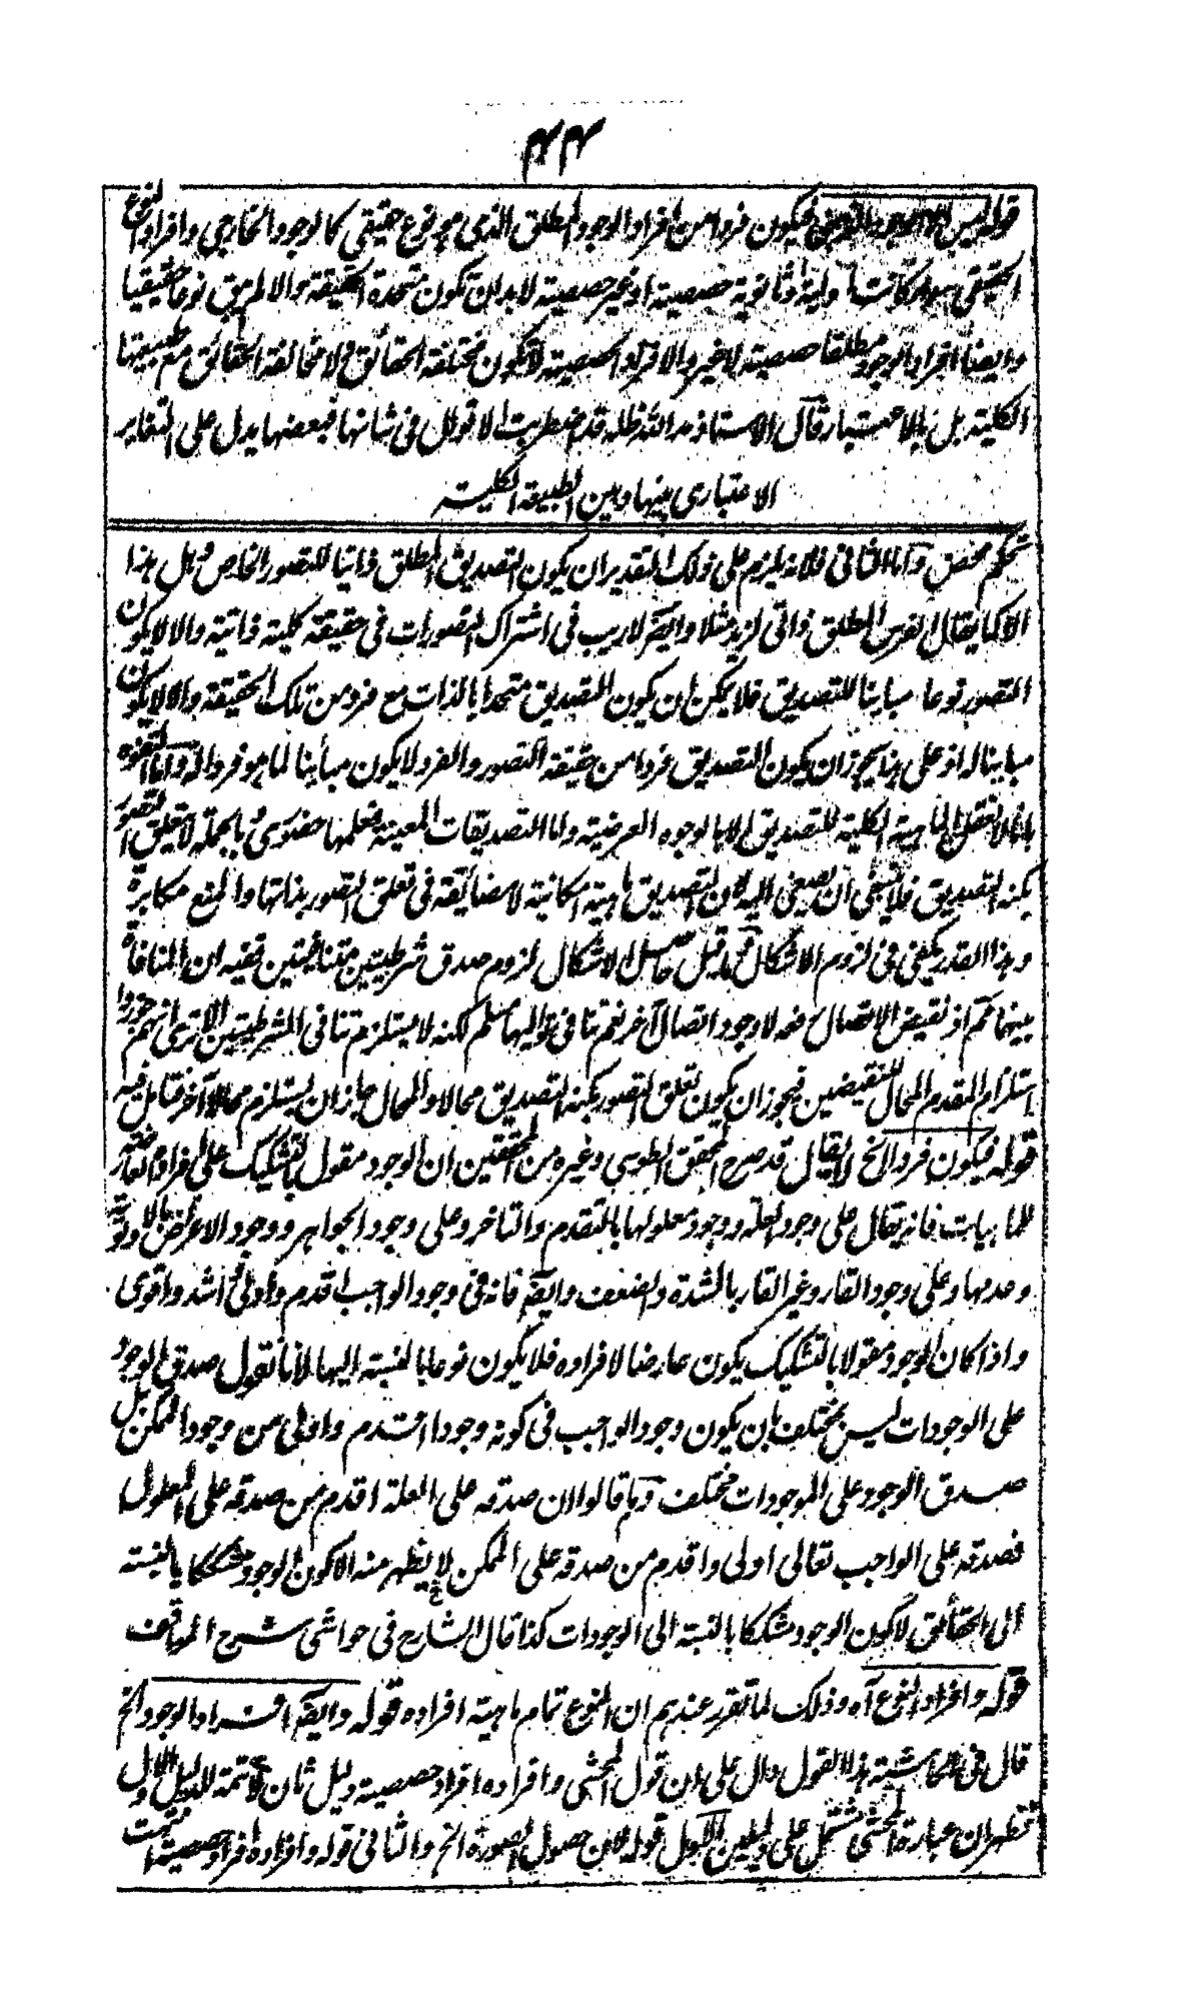 ۴۴
قوله ليس الا الوجود الذهني فيكون فردا من افراد الوجود المطلق الذي هو نوع حقيقي كالوجود الخارجي وافراد النوع
الحقيقي سواء كانت اولية او ثانوية حصصية او غير حصصية لا بد ان تكون متحدة الحقيقة والا لم يبق نوعا حقيقيا
وايضا افراد الوجود مطلقا حصصية لا غير والافراد الحصصية لا تكون مختلفة الحقائق ولا مخالفة الحقائق مع طبيعتها
الكلية بل بالاعتبار قال الاستاذ مد الله ظله قد اضطربت الاقوال في شانها فبعضها يدل على التغاير
الاعتباري بينها وبين الطبيعة الكلية
تحكم محض واما الثاني فلانه يلزم على ذلك التقدير ان يكون التصديق المطلق ذاتيا للتصور الخاص وهل هذا
الا كما يقال الفرس المطلق ذاتي لزيد مثلا وايضا لا ريب في اشتراك التصورات في حقيقة كلية ذاتية والا لا يكون
التصور نوعا مباينا للتصديق فلا يمكن ان يكون التصديق متحدا بالذات مع فرد من تلك الحقيقة والا لا يكون
مباينا له اذ على هذا يجوز ان يكون التصديق فردا من حقيقة التصور والفرد لا يكون مباينا لما هو فرد له واما التفوه
بانا لا نعقل الماهية الكلية للتصديق الا بالوجوه العرضية واما التصديقات المعينة فعلمها حضوري وبالجملة لا يتعلق التصور
بكنه التصديق فلا ينبغي ان يصغى اليه لان التصديق ماهية امكانية لا مضائقة في تعلق التصور بذاتها والمنع مكابرة
وهذا القدر يكفي في لزوم الاشكال فما قيل حاصل الاشكال لزوم صدق شرطيتين متنافيتين ففيه ان المنافاة
بينهما ثم اذ نقيض الاتصال رفعه لا وجود اتصال آخر نعم تنافي تواليهما مسلم لكنه لا يستلزم تنافي الشرطيتين الا ترى انهم جوزوا
استلزام المقدم المحال للنقيضين فيجوز ان يكون تعلق التصور بكنه التصديق محالا والمحال جاز ان يستلزم محالا آخر فتامل فيه
قوله فيكون فردا الخ لا يقال قد صرح المحقق الطوسي وغيره من المحققين ان الوجود مقول بالتشكيك على افراده العارضة
للماهيات فانه يقال على وجود العلة ووجود معلولها بالتقدم والتاخر وعلى وجود الجواهر ووجود الاعراض بالاولوية
وعدمها وعلى وجود القار وغير القار بالشدة والضعف وايضا فانه في وجود الواجب اقدم واولى واشد واقوى
واذا كان الوجود مقولا بالتشكيك يكون عارضا لافراده فلا يكون نوعا بالنسبة اليها لانا نقول صدق الوجود
على الوجودات ليس بمختلف بان يكون وجود الواجب في كونه وجودا اقدم واولى من وجود الممكن بل
صدق الوجود على الموجودات مختلف وما قالوا ان صدقه على العلة اقدم من صدقه على المعلول
فصدقه على الواجب تعالى اولى واقدم من صدقه على الممكن لا يظهر منه الا كون الوجود مشككا بالنسبة
الى الحقائق لا كون الوجود مشككا بالنسبة الى الوجودات كذا قال الشارح في حواشي شرح المواقف
قوله وافراد النوع آه وذلك لما تقرر عندهم ان النوع تمام ماهية افراده قوله وايضا افراد الوجود الخ
قال في الحاشية هذا القول دال على ان قول المحشي وافراده افراد حصصية دليل ثان لا تتمة للدليل الاول
فظهر ان عبارة المحشي مشتمل على دليلين الاول قوله لان حصول الصورة الخ والثاني قوله وافراده افراد حصصية انتهت